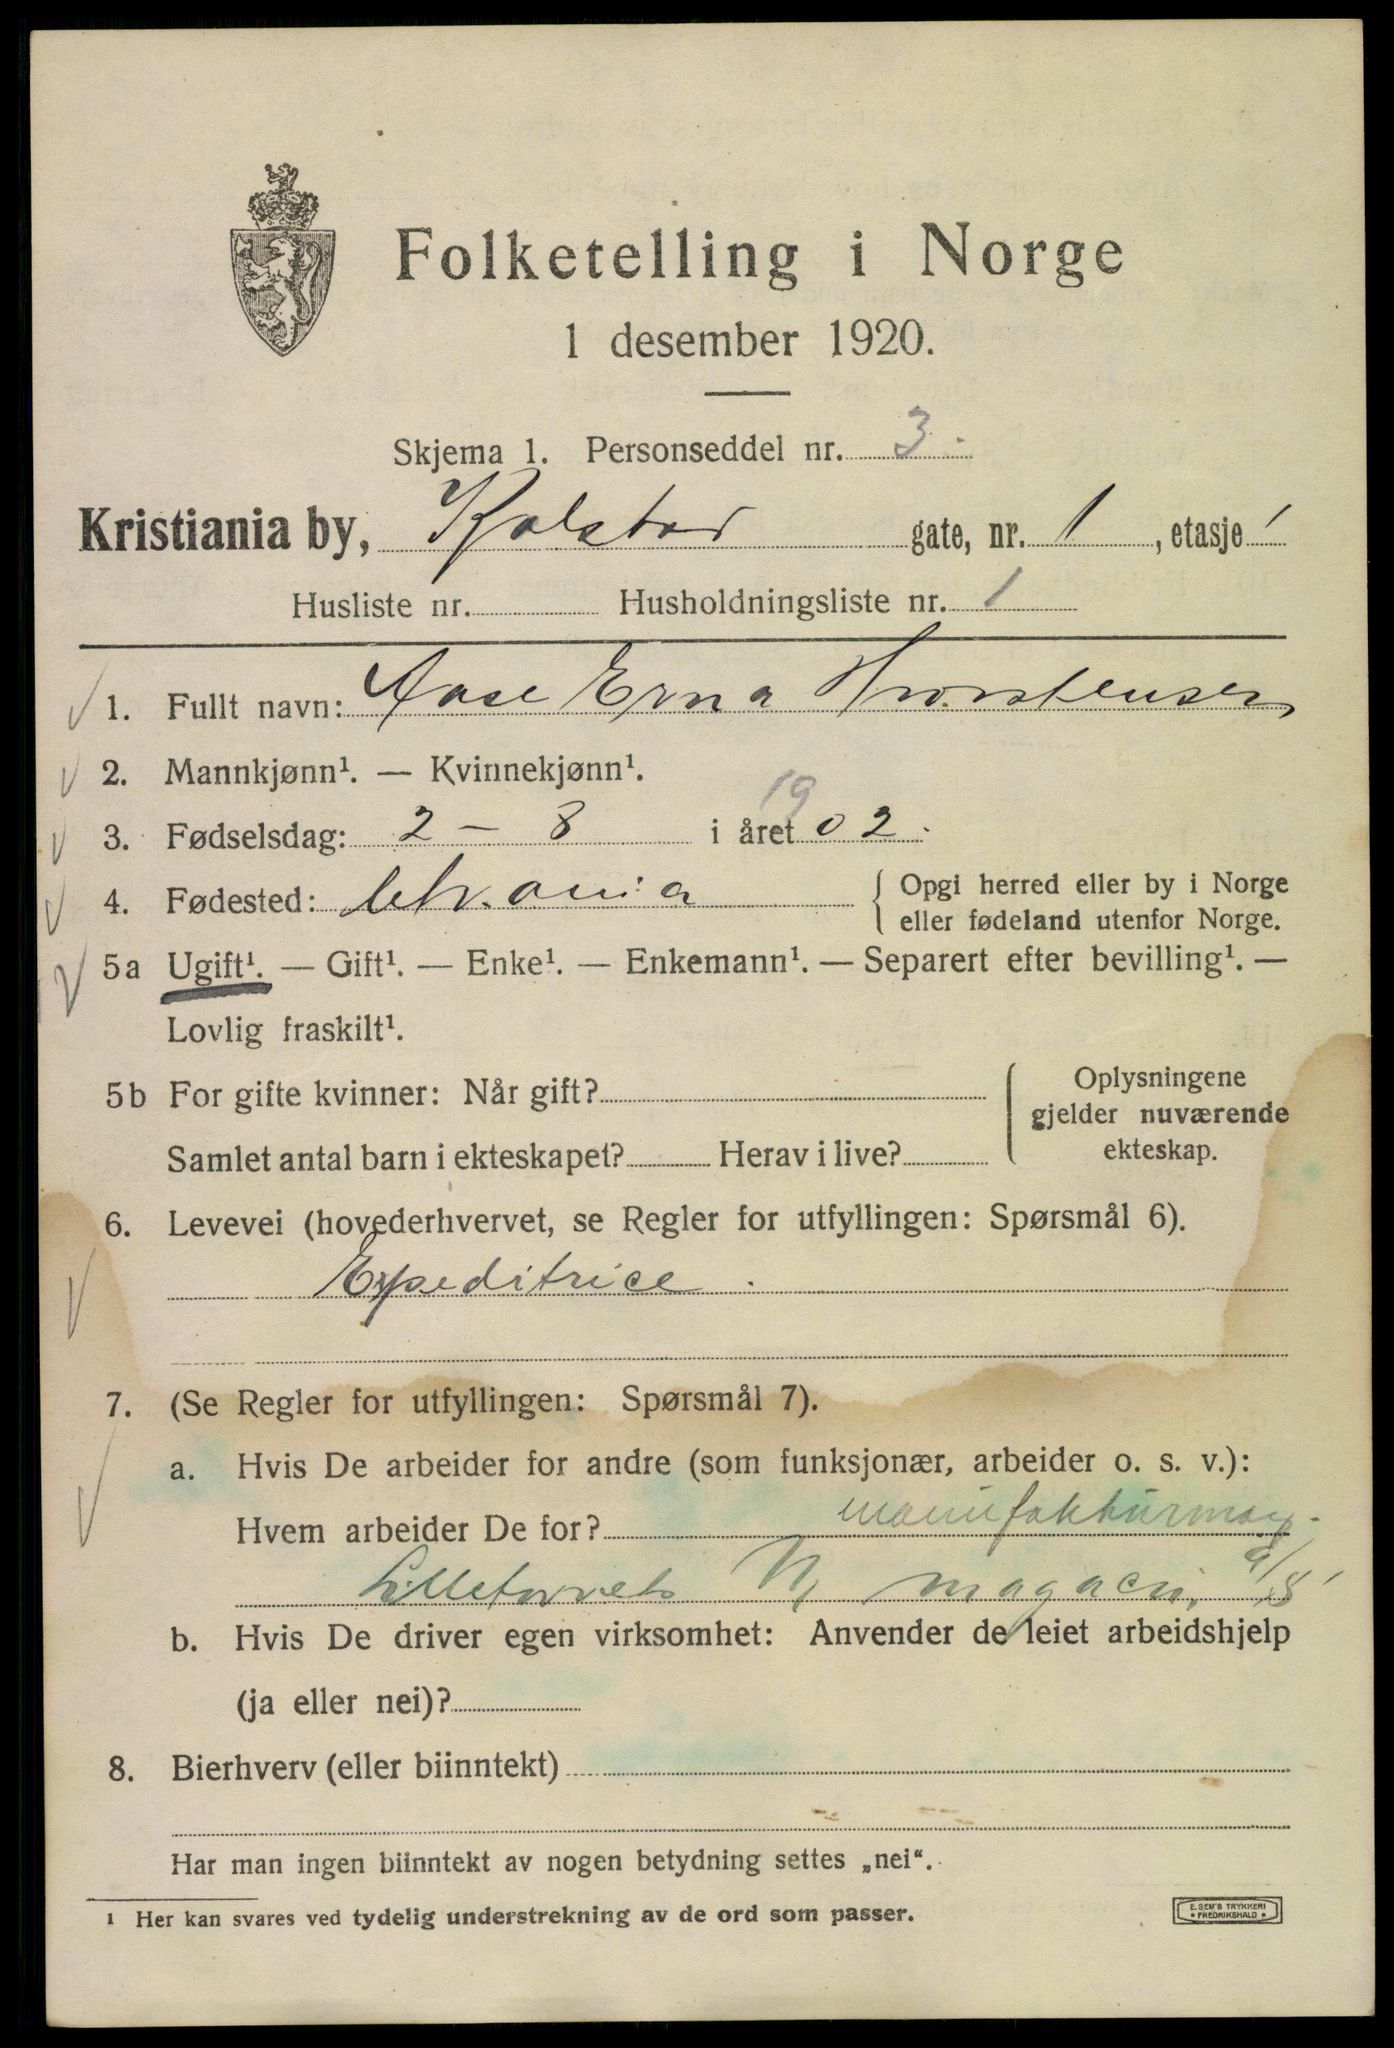 Folketelling i Norge
1 desember 1920.
Skjema 1. Personseddel nr. 3.
Kristiania by, Kolstad gate, nr. 1, etasje 1
Husliste nr. Husholdningsliste nr. 1
1. Fullt navn: Aase Erna Thorstensen
2. Mannkjønn¹. — Kvinnekjønn¹.
3. Fødselsdag: 2 – 8 i året 1902.
4. Fødested: Chr.ania { Opgi herred eller by i Norge
eller fødeland utenfor Norge.
5a Ugift¹. — Gift¹. — Enke¹. — Enkemann¹. — Separert efter bevilling¹. —
Lovlig fraskilt¹.
5b For gifte kvinner: Når gift? { Oplysningene
gjelder nuværende
Samlet antal barn i ekteskapet? Herav i live? ekteskap.
6. Levevei (hovederhvervet, se Regler for utfyllingen: Spørsmål 6).
Expeditrice.
7. (Se Regler for utfyllingen: Spørsmål 7).
a. Hvis De arbeider for andre (som funksjonær, arbeider o. s. v.):
Hvem arbeider De for? manufakturmag.
Lilletorvets magacin, A/S
b. Hvis De driver egen virksomhet: Anvender de leiet arbeidshjelp
(ja eller nei)?
8. Bierhverv (eller biinntekt)
Har man ingen biinntekt av nogen betydning settes „nei“.
¹ Her kan svares ved tydelig understrekning av de ord som passer.
E. SEM'S TRYKKERI
• FREDRIKSHALD •